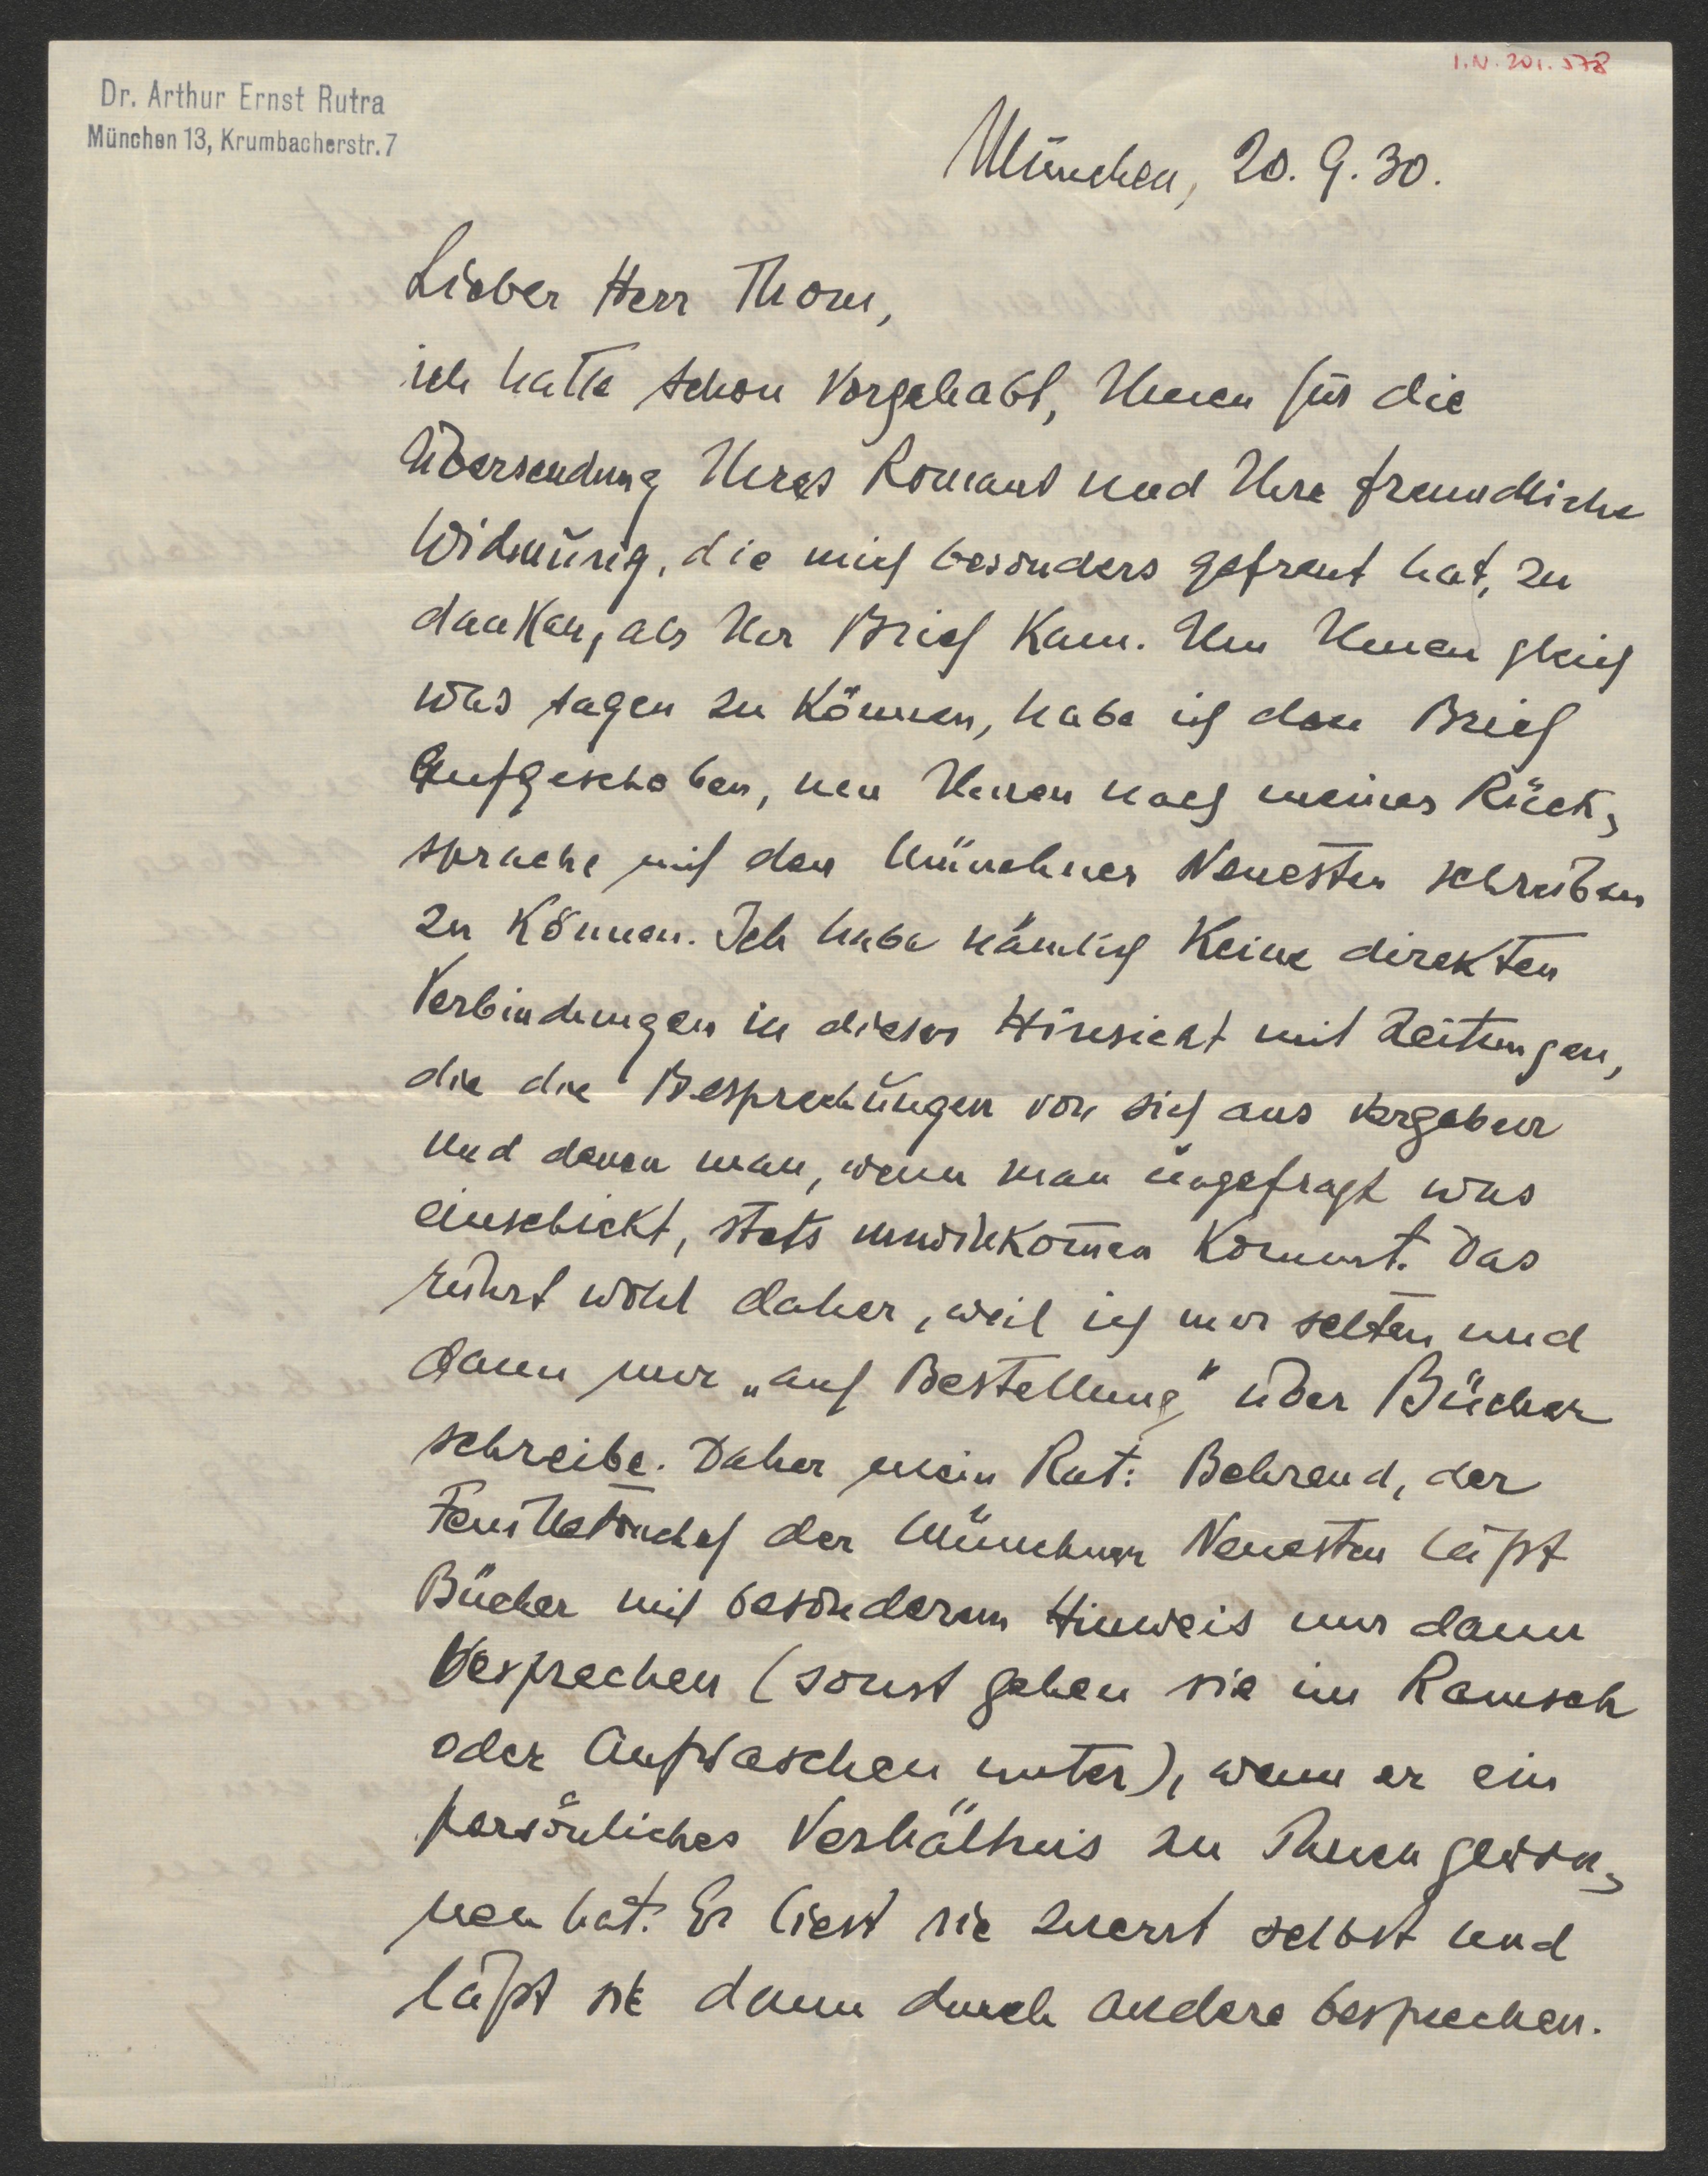 I.N. 201.578
Dr. Arthur Ernst Rutra
München 13, Krumbacherstr. 7
München, 20. 9. 30.
Lieber Herr Thom,
ich hatte schon vorgehabt, Ihnen für die
Übersendung Ihres Romans und Ihre freundliche
Widmung, die mich besonders gefreut hat, zu
danken, als Ihr Brief kam. Um Ihnen gleich
was sagen zu können, habe ich den Brief
aufgeschoben, um Ihnen nach meiner Rück-
sprache mit den Münchner Neuesten schreiben
zu können. Ich habe nämlich keine direkten
Verbindungen in dieser Hinsicht mit Zeitungen,
die die Besprechungen von sich aus vergeben
und denen man, wenn man ungefragt was
einschickt, stets unwillkommen kommt. Das
rührt wohl daher, weil ich nur selten und
dann nur „auf Bestellung" über Bücher
schreibe. Daher mein Rat: Behrend, der
Feuilletonchef der Münchner Neuesten läßt
Bücher mit besonderem Hinweis nur dann
besprechen (sonst gehen sie im Ramsch
oder Aufwaschen unter), wenn er ein
persönliches Verhältnis zu Ihnen gewon-
nen hat. Er liest sie zuerst selbst und
läßt sie dann durch andere besprechen.